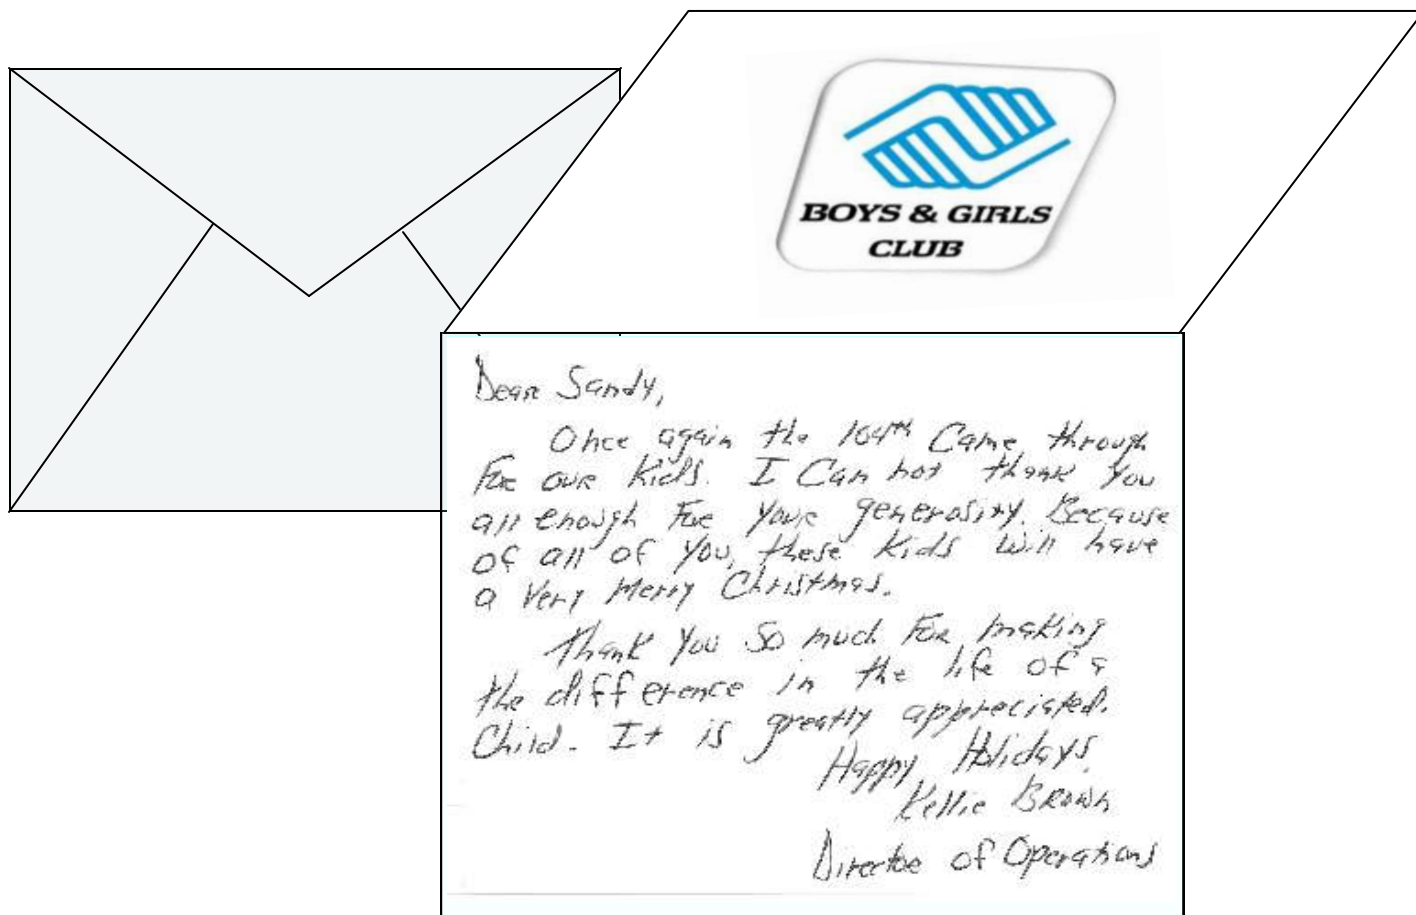 BOYS & GIRLS
CLUB
Dear Sandy,
Once again the 164th Came through
For our Kids. I Can not thank You
all enough For Your generosity. Because
of all of You, these Kids will have
a Very Merry Christmas.
Thank You So much For making
the difference in the life of a
Child. It is greatly appreciated.
Happy Holidays,
Kellie Brown
Director of Operations